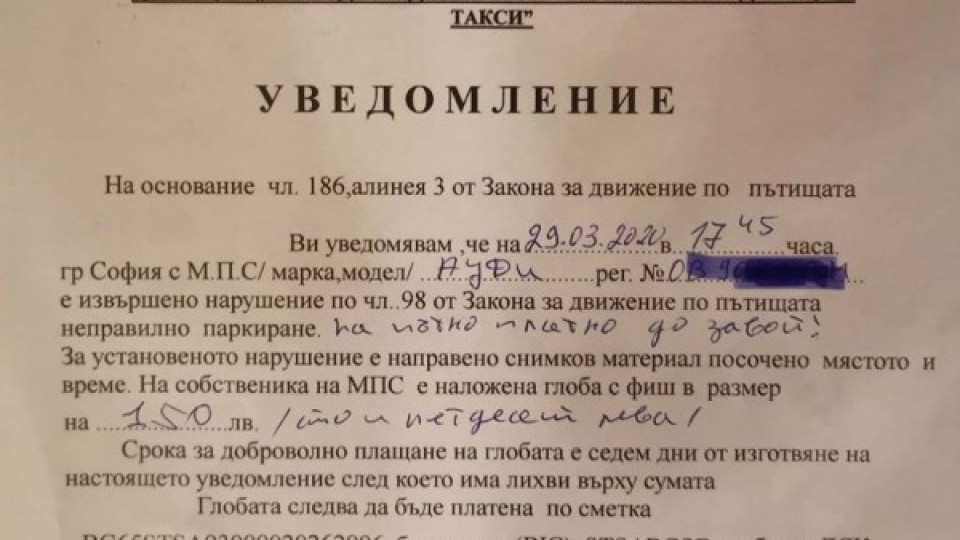 ТАКСИ”
УВЕДОМЛЕНИЕ
На основание чл. 186,алинея 3 от Закона за движение по пътищата
Ви уведомявам ,че на 29.03.2020 в 17 45 часа
гр София с М.П.С/ марка,модел/ АУДИ рег. № ОВ
е извършено нарушение по чл..98 от Закона за движение по пътищата
неправилно паркиране. на пътно платно до завой!
За установеното нарушение е направено снимков материал посочено мястото и
време. На собственика на МПС е наложена глоба с фиш в размер
на 150 лв. /сто и петдесет лева/
Срока за доброволно плащане на глобата е седем дни от изготвяне на
настоящето уведомление след което има лихви върху сумата
Глобата следва да бъде платена по сметка